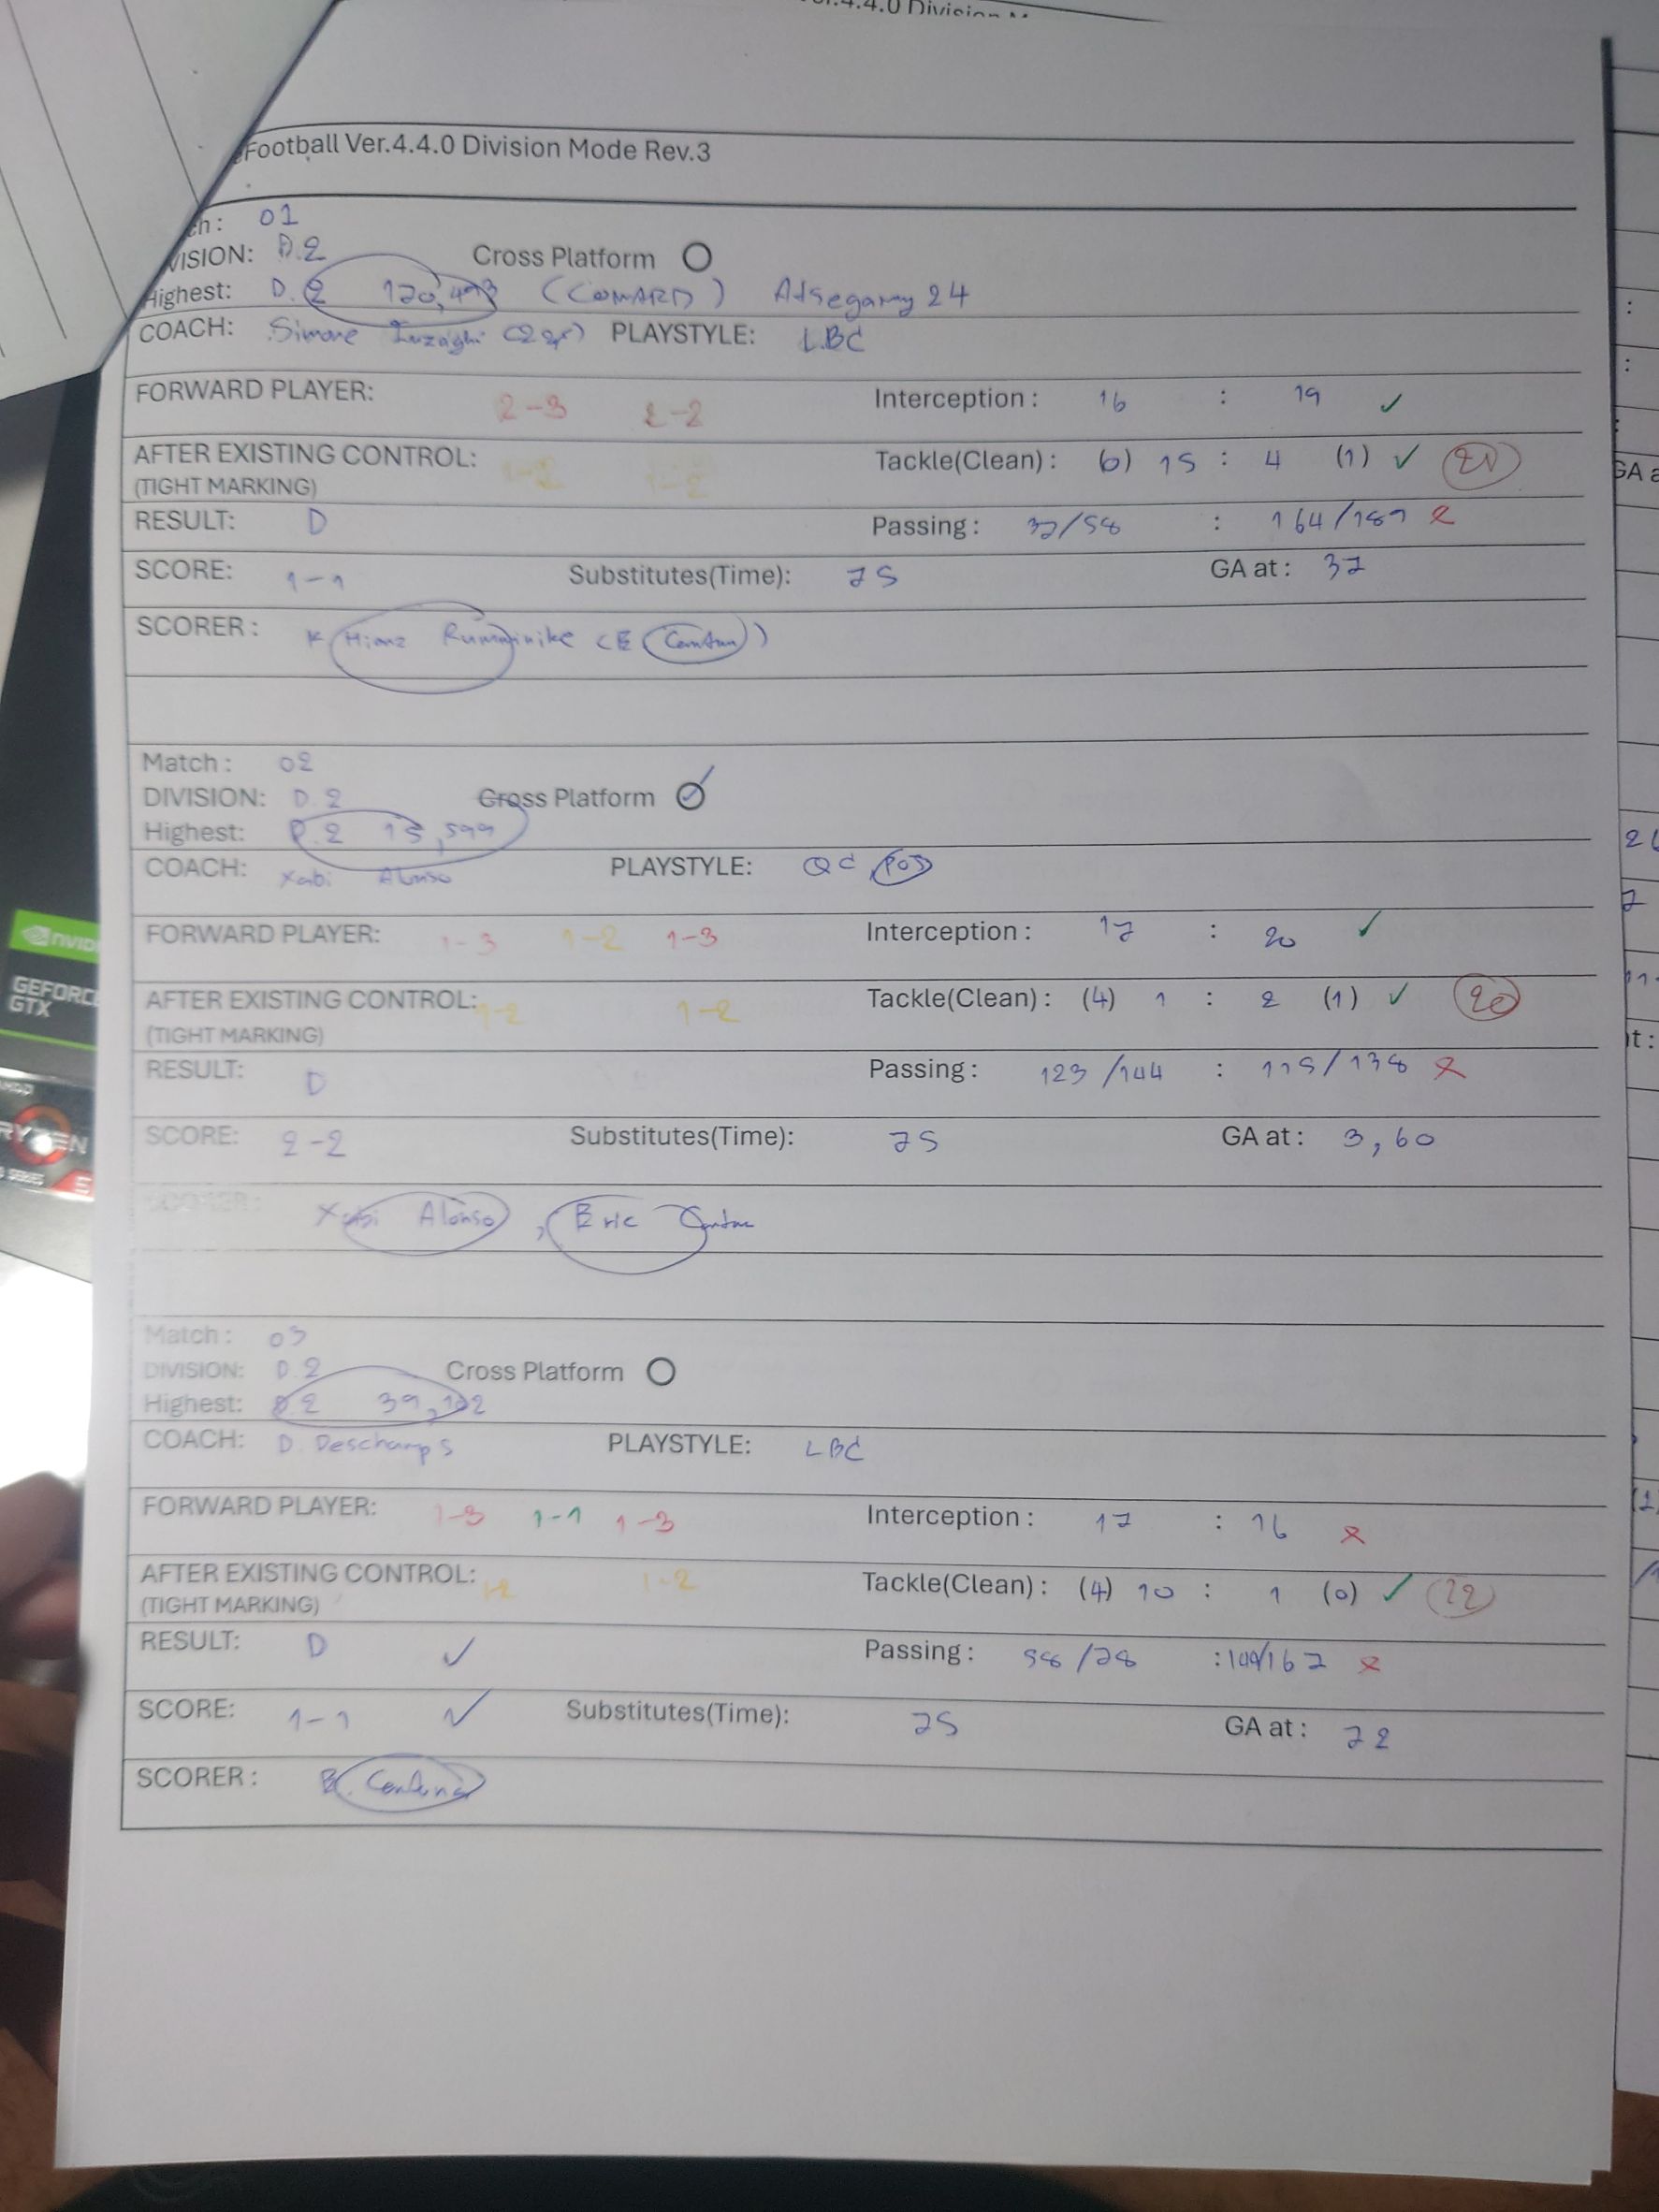 eFootball Ver.4.4.0 Division Mode Rev.3
ch: 01
VISION: D.2 Cross Platform
Highest: D.2 120,493 (COMARD)
COACH: Simone Inzaghi PLAYSTYLE: LBC
FORWARD PLAYER: 2-3 2-2 Interception: 16 : 19 ✓
AFTER EXISTING CONTROL: 1-2 1-2 Tackle(Clean): 6) 15 : 4 (1) ✓
(TIGHT MARKING)
RESULT: D Passing: 37/58 : 164/189 x
SCORE: 1-1 Substitutes(Time): 75 GA at: 37
SCORER: K
Match: 02
DIVISION: D.2 Cross Platform ✓
Highest: D.2 15,599
COACH: Xabi Alonso PLAYSTYLE: QC, POS
FORWARD PLAYER: 1-3 1-2 1-3 Interception: 17 : 20 ✓
AFTER EXISTING CONTROL: 1-2 1-2 Tackle(Clean): (4) 1 : 2 (1) ✓ 20
(TIGHT MARKING)
RESULT: D Passing: 123/144 : 115/138 x
SCORE: 2-2 Substitutes(Time): 75 GA at: 3,60
SCORER: Xabi Alonso, Eric
Match: 03
DIVISION: D.2 Cross Platform
Highest: D.2 39,102
COACH: D. Deschamps PLAYSTYLE: LBC
FORWARD PLAYER: 1-3 1-1 1-3 Interception: 17 : 16 x
AFTER EXISTING CONTROL: 1-2 1-2 Tackle(Clean): (4) 10 : 1 (0) ✓ 22
(TIGHT MARKING)
RESULT: D ✓ Passing: 58/78 : 149/167 x
SCORE: 1-1 ✓ Substitutes(Time): 75 GA at: 72
SCORER:
NVIDIA
GEFORCE
GTX
AMD
RYZEN
5